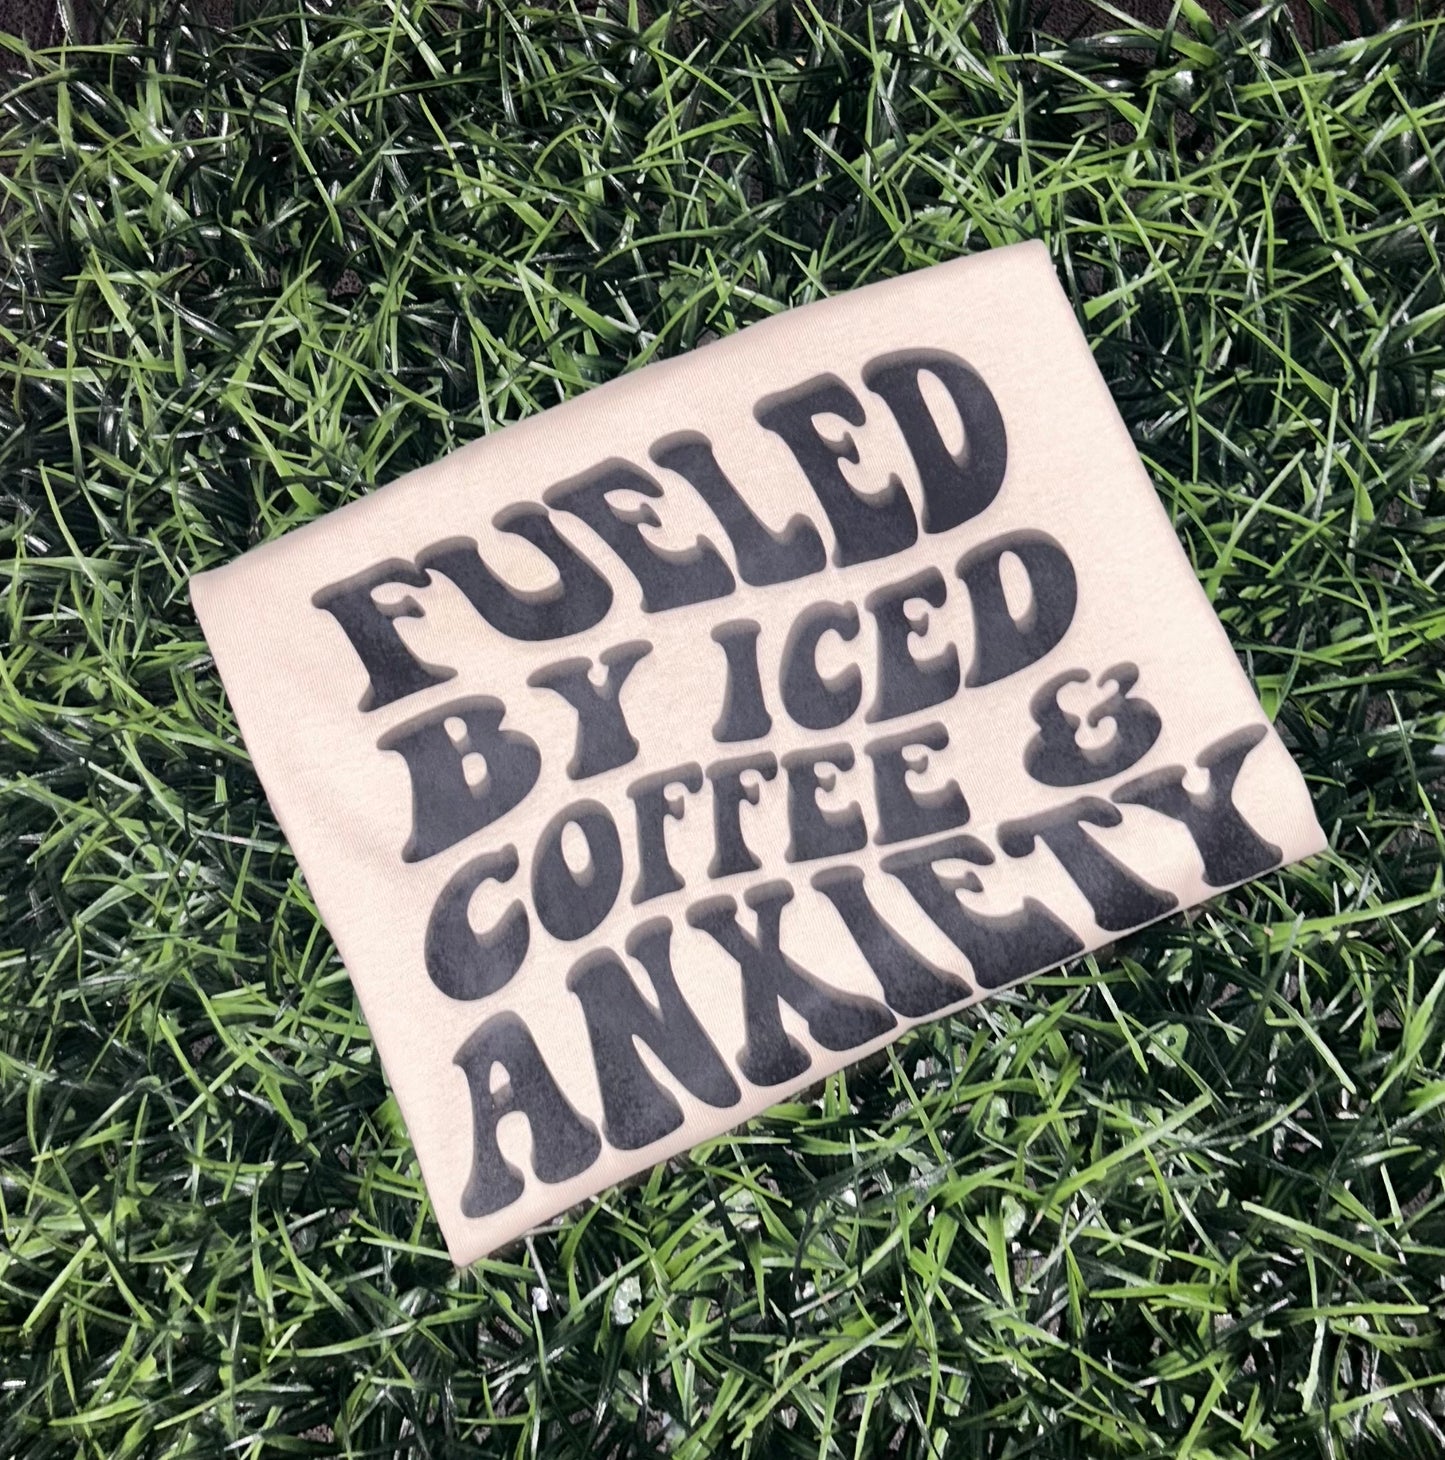 FUELED
BY ICED
COFFEE &
ANXIETY